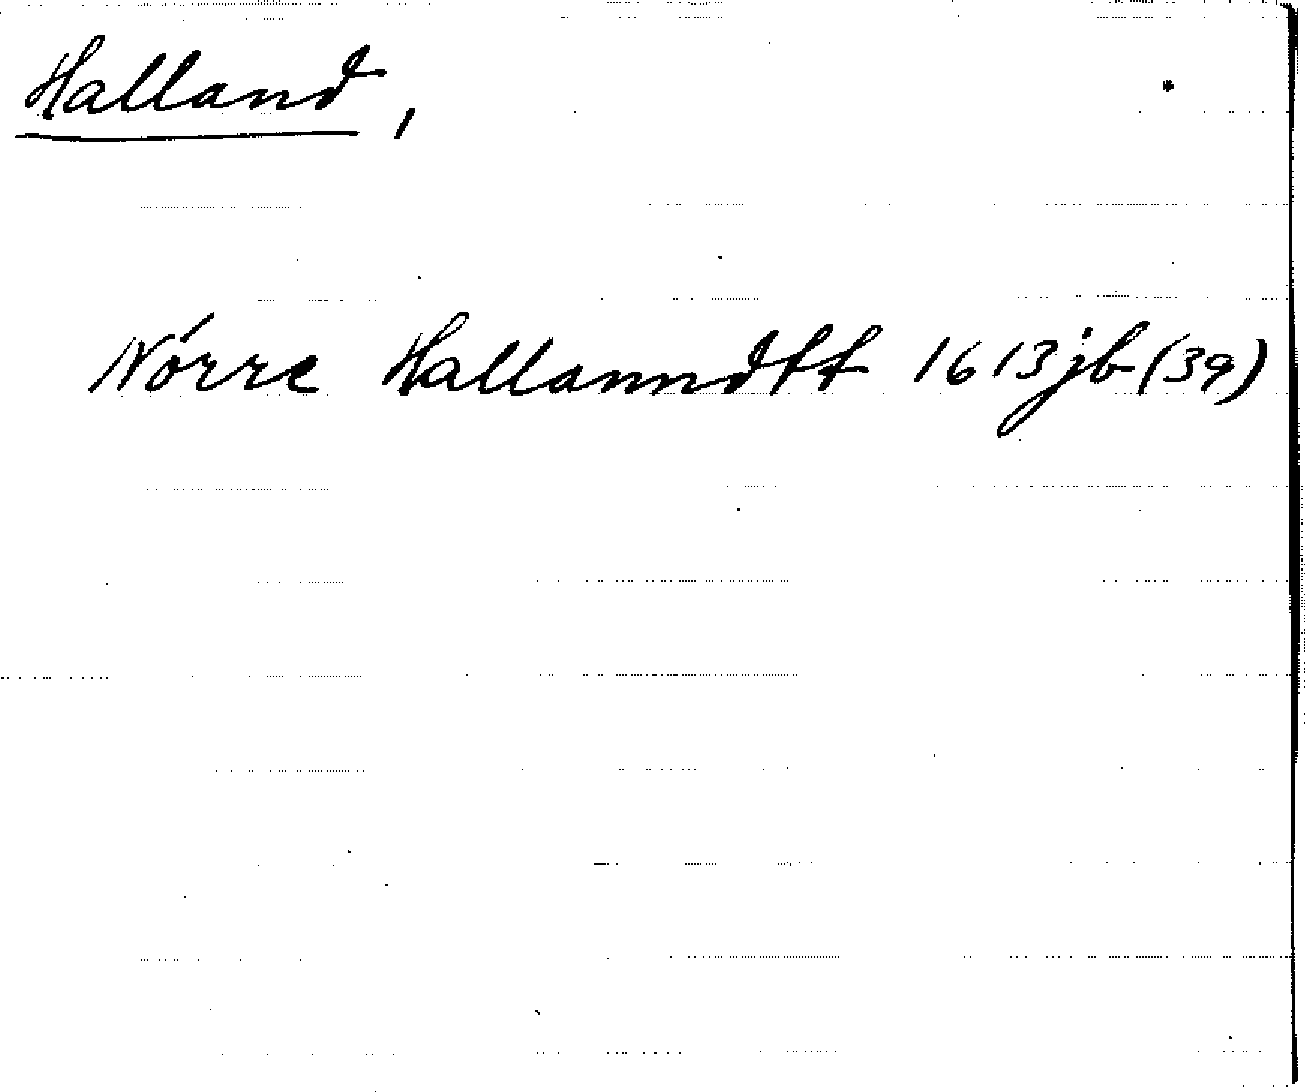 Halland,
Nórre Hallanndtt 1613 jb (39)